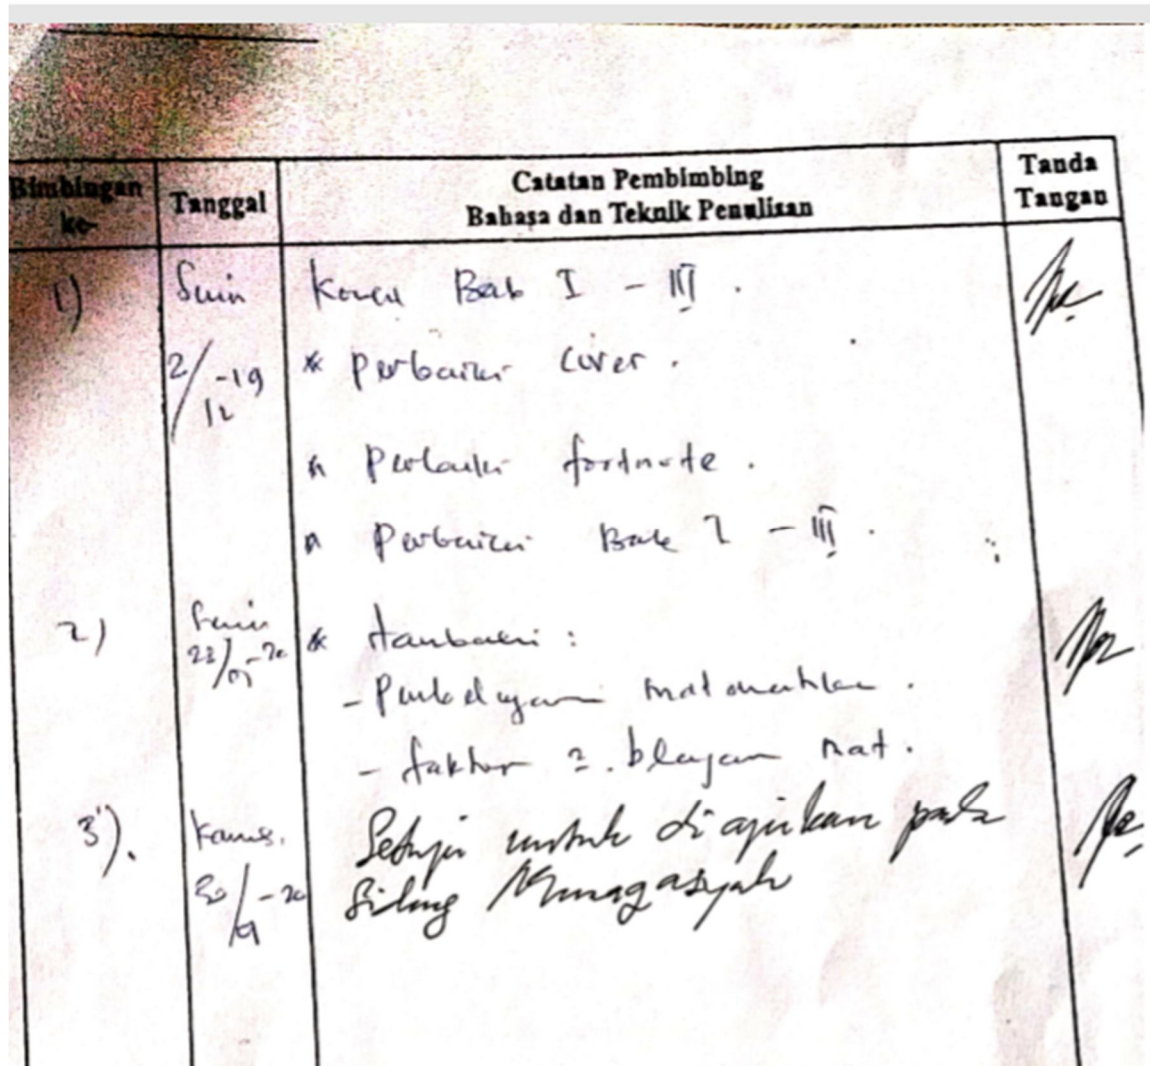 Bimbingan ke- Tanggal Catatan Pembimbing Bahasa dan Teknik Penulisan Tanda Tangan
1) Senin Koreksi Bab I - III.
2/12-19 * Perbaiki cover.
* Perbaiki footnote.
* Perbaiki Bab I - III.
2) Senin * tambahi:
23/ -20
- matematika.
- faktor 2. mat.
3). Kamis. Setuju untuk diajukan pada
-20 Sidang Munaqasyah